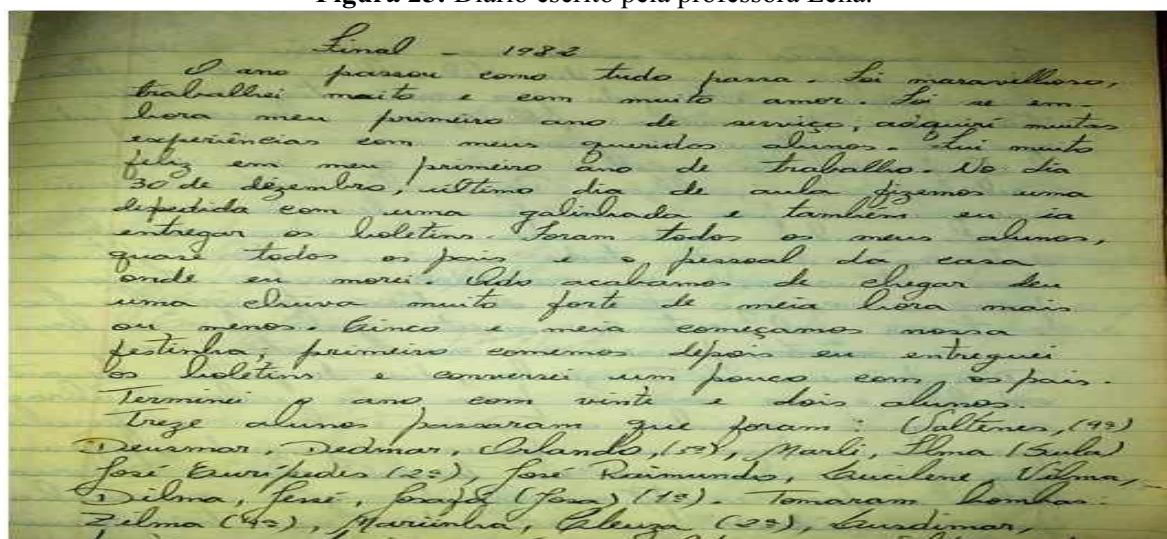 Figura 25: Diário escrito pela professora Lena.
Final - 1982
O ano passou como tudo passa. Foi maravilhoso,
trabalhei muito e com muito amor. Foi se em-
bora meu primeiro ano de serviço, adquiri muitas
experiências com meus queridos alunos. Fui muito
feliz em meu primeiro ano de trabalho. No dia
30 de dezembro, último dia de aula fizemos uma
depedida com uma galinhada e também eu ia
entregar os boletins. Foram todos os meus alunos,
quase todos os pais e o pessoal da casa
onde eu morei. Nós acabamos de chegar deu
uma chuva muito forte de meia hora mais
ou menos. Cinco e meia começamos nossa
festinha, primeiro comemos depois eu entreguei
os boletins e conversei um pouco com os pais.
Terminei o ano com vinte e dois alunos.
Treze alunos passaram que foram: (4ª)
Deusmar, Dedmar, Orlando, Marli, Ilma (Sula)
José Eurípedes (2ª), José Raimundo, Lucilene, Vilma,
Dilma, (1ª). Tomaram bombas:
Zilma (4ª), Mariinha, Cleuza (2ª),